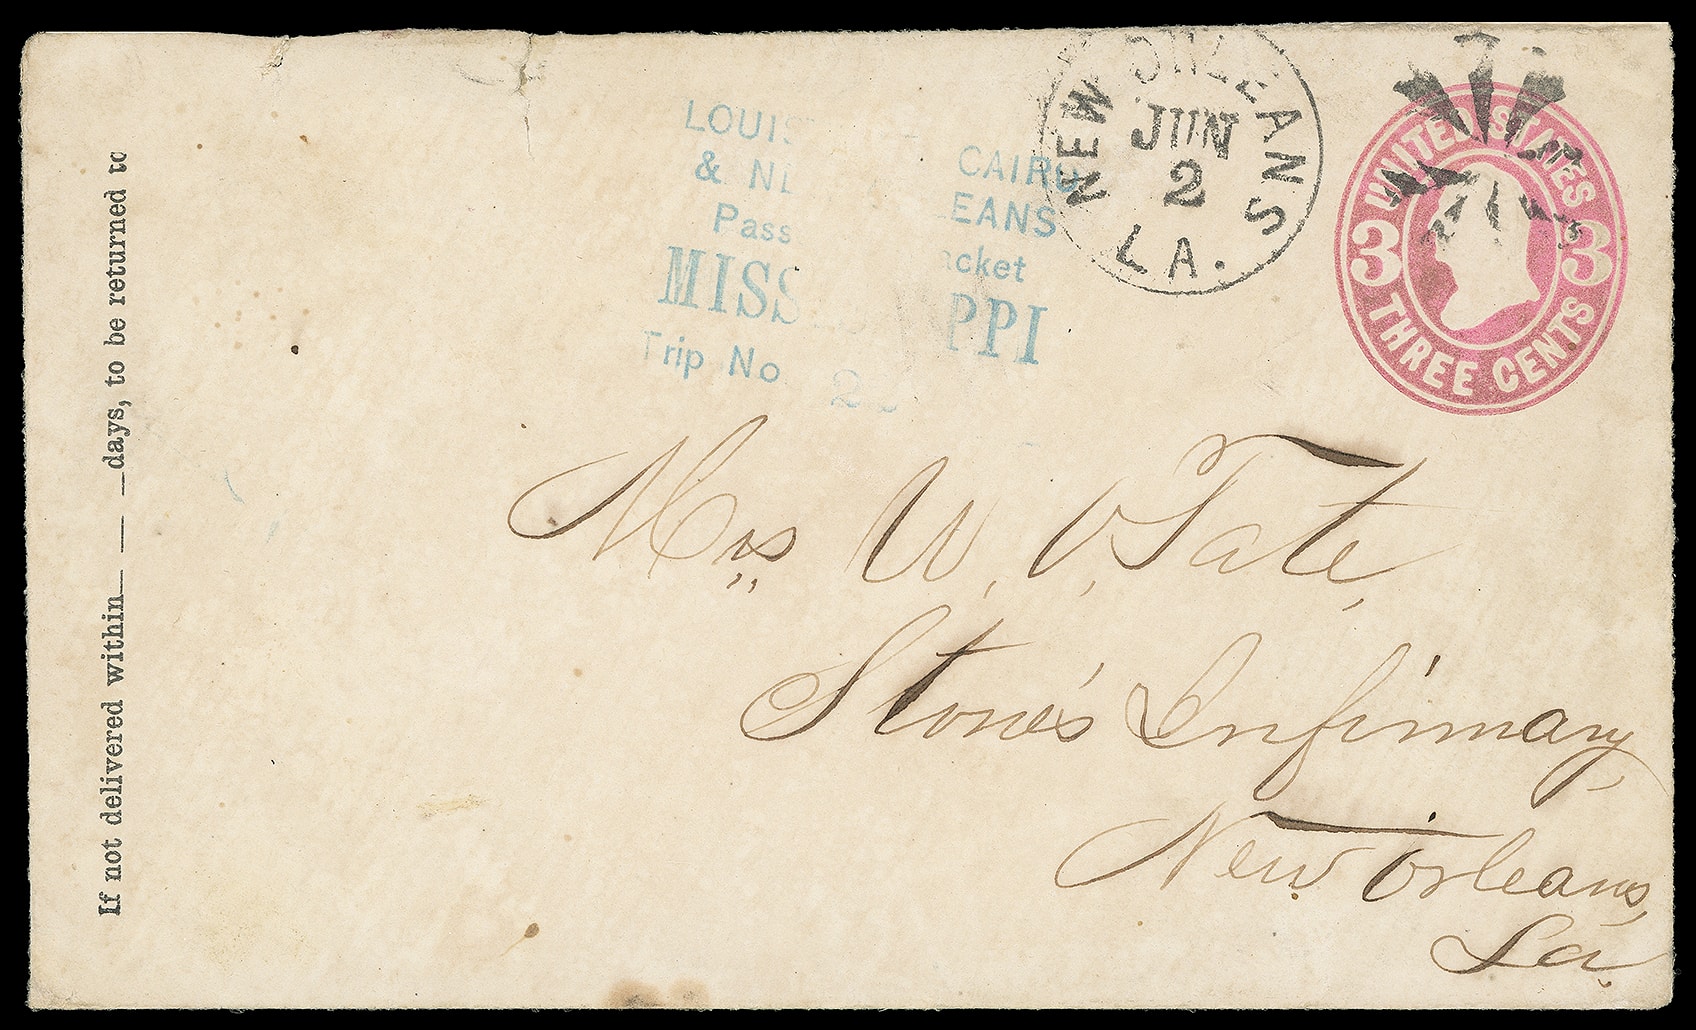 If not delivered within days, to be returned to
CAIRO
& EANS
Trip No
NEW ORLEANS
JUN
2
LA.
UNITED STATES
3 3
THREE CENTS
Mrs W. V. Tate,
Stone's Infirmary,
New Orleans,
La.